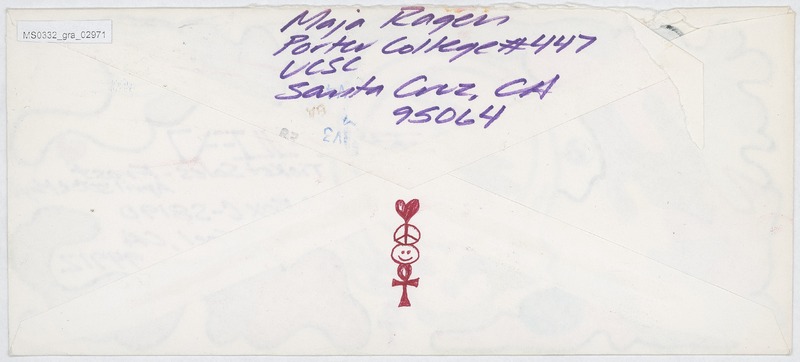 MS0332_gra_02971
Maja Ragen
Porter College #447
UCSC
Santa Cruz, CA
95064